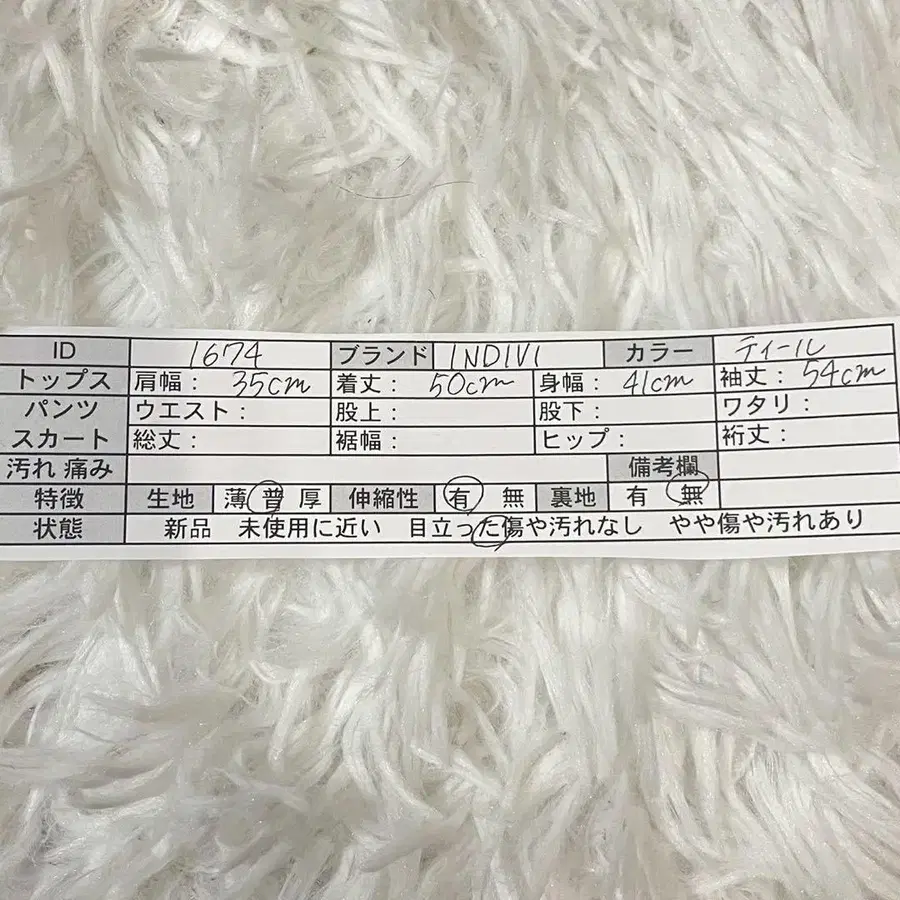 ID 1674 ブランド INDIVI カラー ティール
トップス 肩幅： 35cm 着丈： 50cm 身幅： 41cm 袖丈： 54cm
パンツ ウエスト： 股上： 股下： ワタリ：
スカート 総丈： 裾幅： ヒップ： 裄丈：
汚れ 痛み 備考欄
特徴 生地 薄 普 厚 伸縮性 有 無 裏地 有 無
状態 新品 未使用に近い 目立った傷や汚れなし やや傷や汚れあり